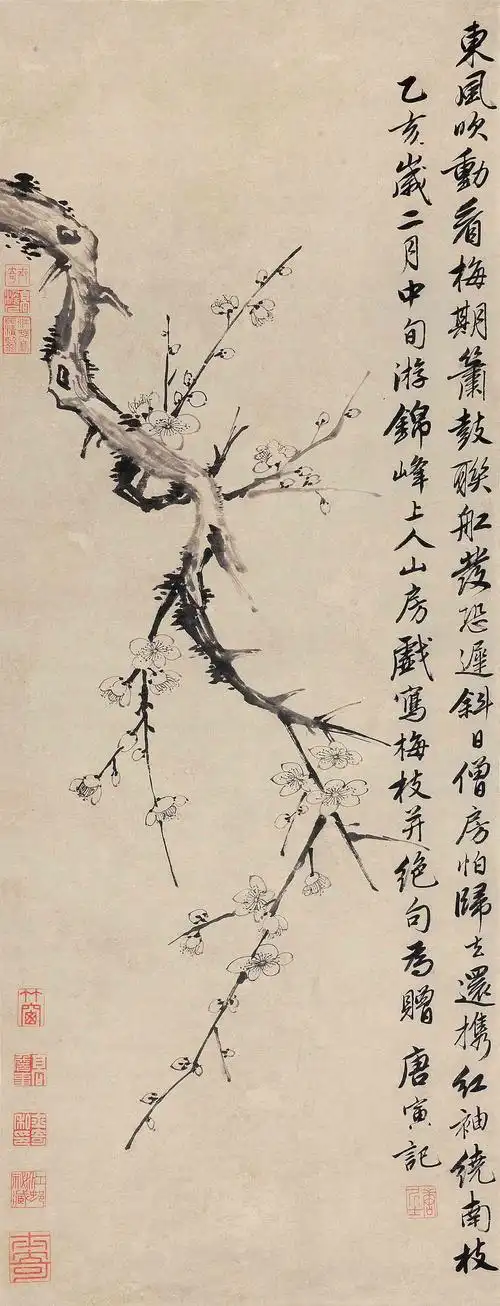 東風吹動看梅期簫鼓聯船發恐遲斜日僧房怕歸去還携紅袖繞南枝
乙亥歲二月中旬游錦峰上人山房戲寫梅枝并絕句為贈 唐寅記